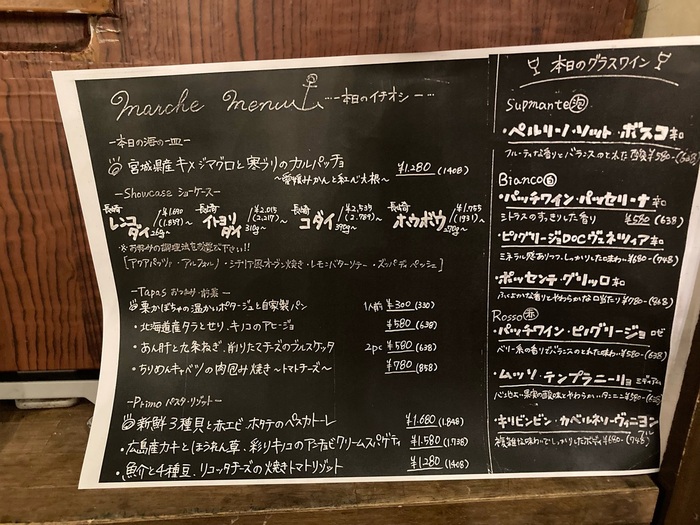 Marche Menu …本日のイチオシ…
ー本日の海の一皿ー
宮城県産キメジマグロと寒ブリのカルパッチョ ¥1.280 (1408)
〜愛媛みかんと紅心大根〜
ーShowcase ショーケースー
長崎 レンコダイ /¥1.690 (1.859)〜
長崎 イトヨリダイ /¥2,015 (2.217)〜 310g〜
長崎 コダイ /¥2,535 (2.789)〜 390g〜
長崎 ホウボウ /¥1.755 (1931)〜 270g〜
※お好みの調理法をお選び下さい!!
[アクアパッツァ・アルフォルノ・シチリア風オーブン焼き・レモンバターソテー・ズッパディペッシェ]
ーTapas おつまみ・前菜ー
栗かぼちゃの温かいポタージュと自家製パン 1人前 ¥300 (330)
・北海道産タラとせり、キノコのアヒージョ ¥580 (638)
・あん肝と九条ねぎ、削りたてチーズのブルスケッタ 2pc ¥580 (638)
・ちりめんキャベツの肉包み焼き〜トマトチーズ〜 ¥780 (858)
ーPrimo パスタ・リゾットー
新鮮3種貝と赤エビ、ホタテのペスカトーレ ¥1.680 (1.848)
・広島産カキとほうれん草、彩りキノコのアンチョビクリームスパゲティ ¥1.580 (1.738)
・魚介と4種豆、リコッタチーズの焼きトマトリゾット ¥1280 (1408)
本日のグラスワイン
Supmante 泡
・ペルリーノ・ソット・ボスコ 辛口
フルーティな香りとバランスのとれた ¥580-(638)
Bianco 白
・パッチワイン・パッセリーナ 辛口
シトラスのすっきりした香り ¥580 (638)
・ピノグリージョDOCヴェネツィア 辛口
ミネラル感ありつつ、しっかりした口味わい ¥680-(748)
・ポッセンテ・グリッロ 辛口
ふくよかな香りとやわらかな口当たり ¥780-(848)
Rosso 赤
・パッチワイン・ピノグリージョ ロゼ
ベリー系の香りでバランスのとれた味わい ¥580-(638)
・ムッソ・テンプラニーリョ ミディアム
果実の酸味とやわらかいタンニン ¥580-
・キリビンビン・カベルネソーヴィニヨン フル
複雑な味わいでしっかりしたボディ ¥680-(748)